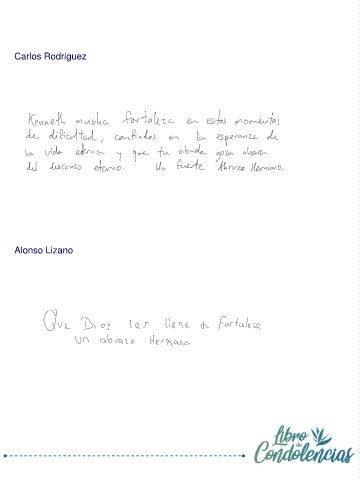 Carlos Rodríguez
Kenneth mucha fortaleza en estos momentos
de dificultad, confiados en la esperanza de
la vida eterna y que tu abuela goza ahora
del descanso eterno. Un fuerte Abrazo Hermano.
Alonso Lizano
Que Dios les llene de fortaleza
un abrazo Hermana
Libro
de
Condolencias